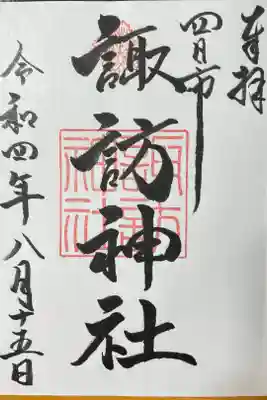 奉拝
四日市
諏訪神社
諏訪神社
令和四年八月十五日